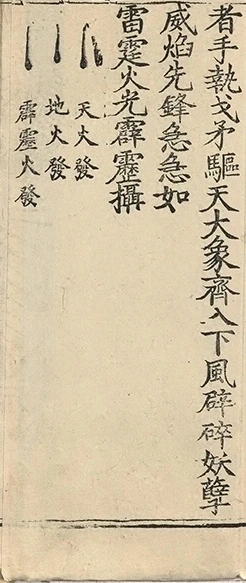 者手執戈矛驅天大象齊入下風辟碎妖孽
威焰先鋒急急如
雷霆火光霹靂攝
天火發
地火發
霹靂火發